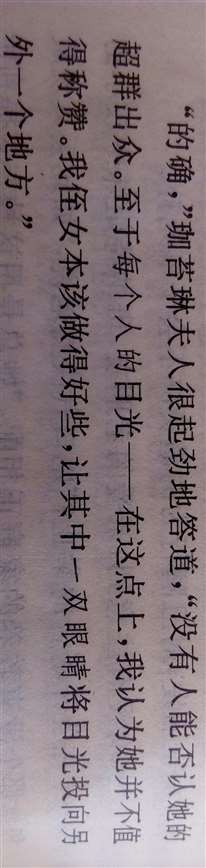 “的确，”珈苔琳夫人很起劲地答道，“没有人能否认她的
超群出众。至于每个人的目光——在这点上，我认为她并不值
得称赞。我侄女本该做得好些，让其中一双眼睛将目光投向另
外一个地方。”